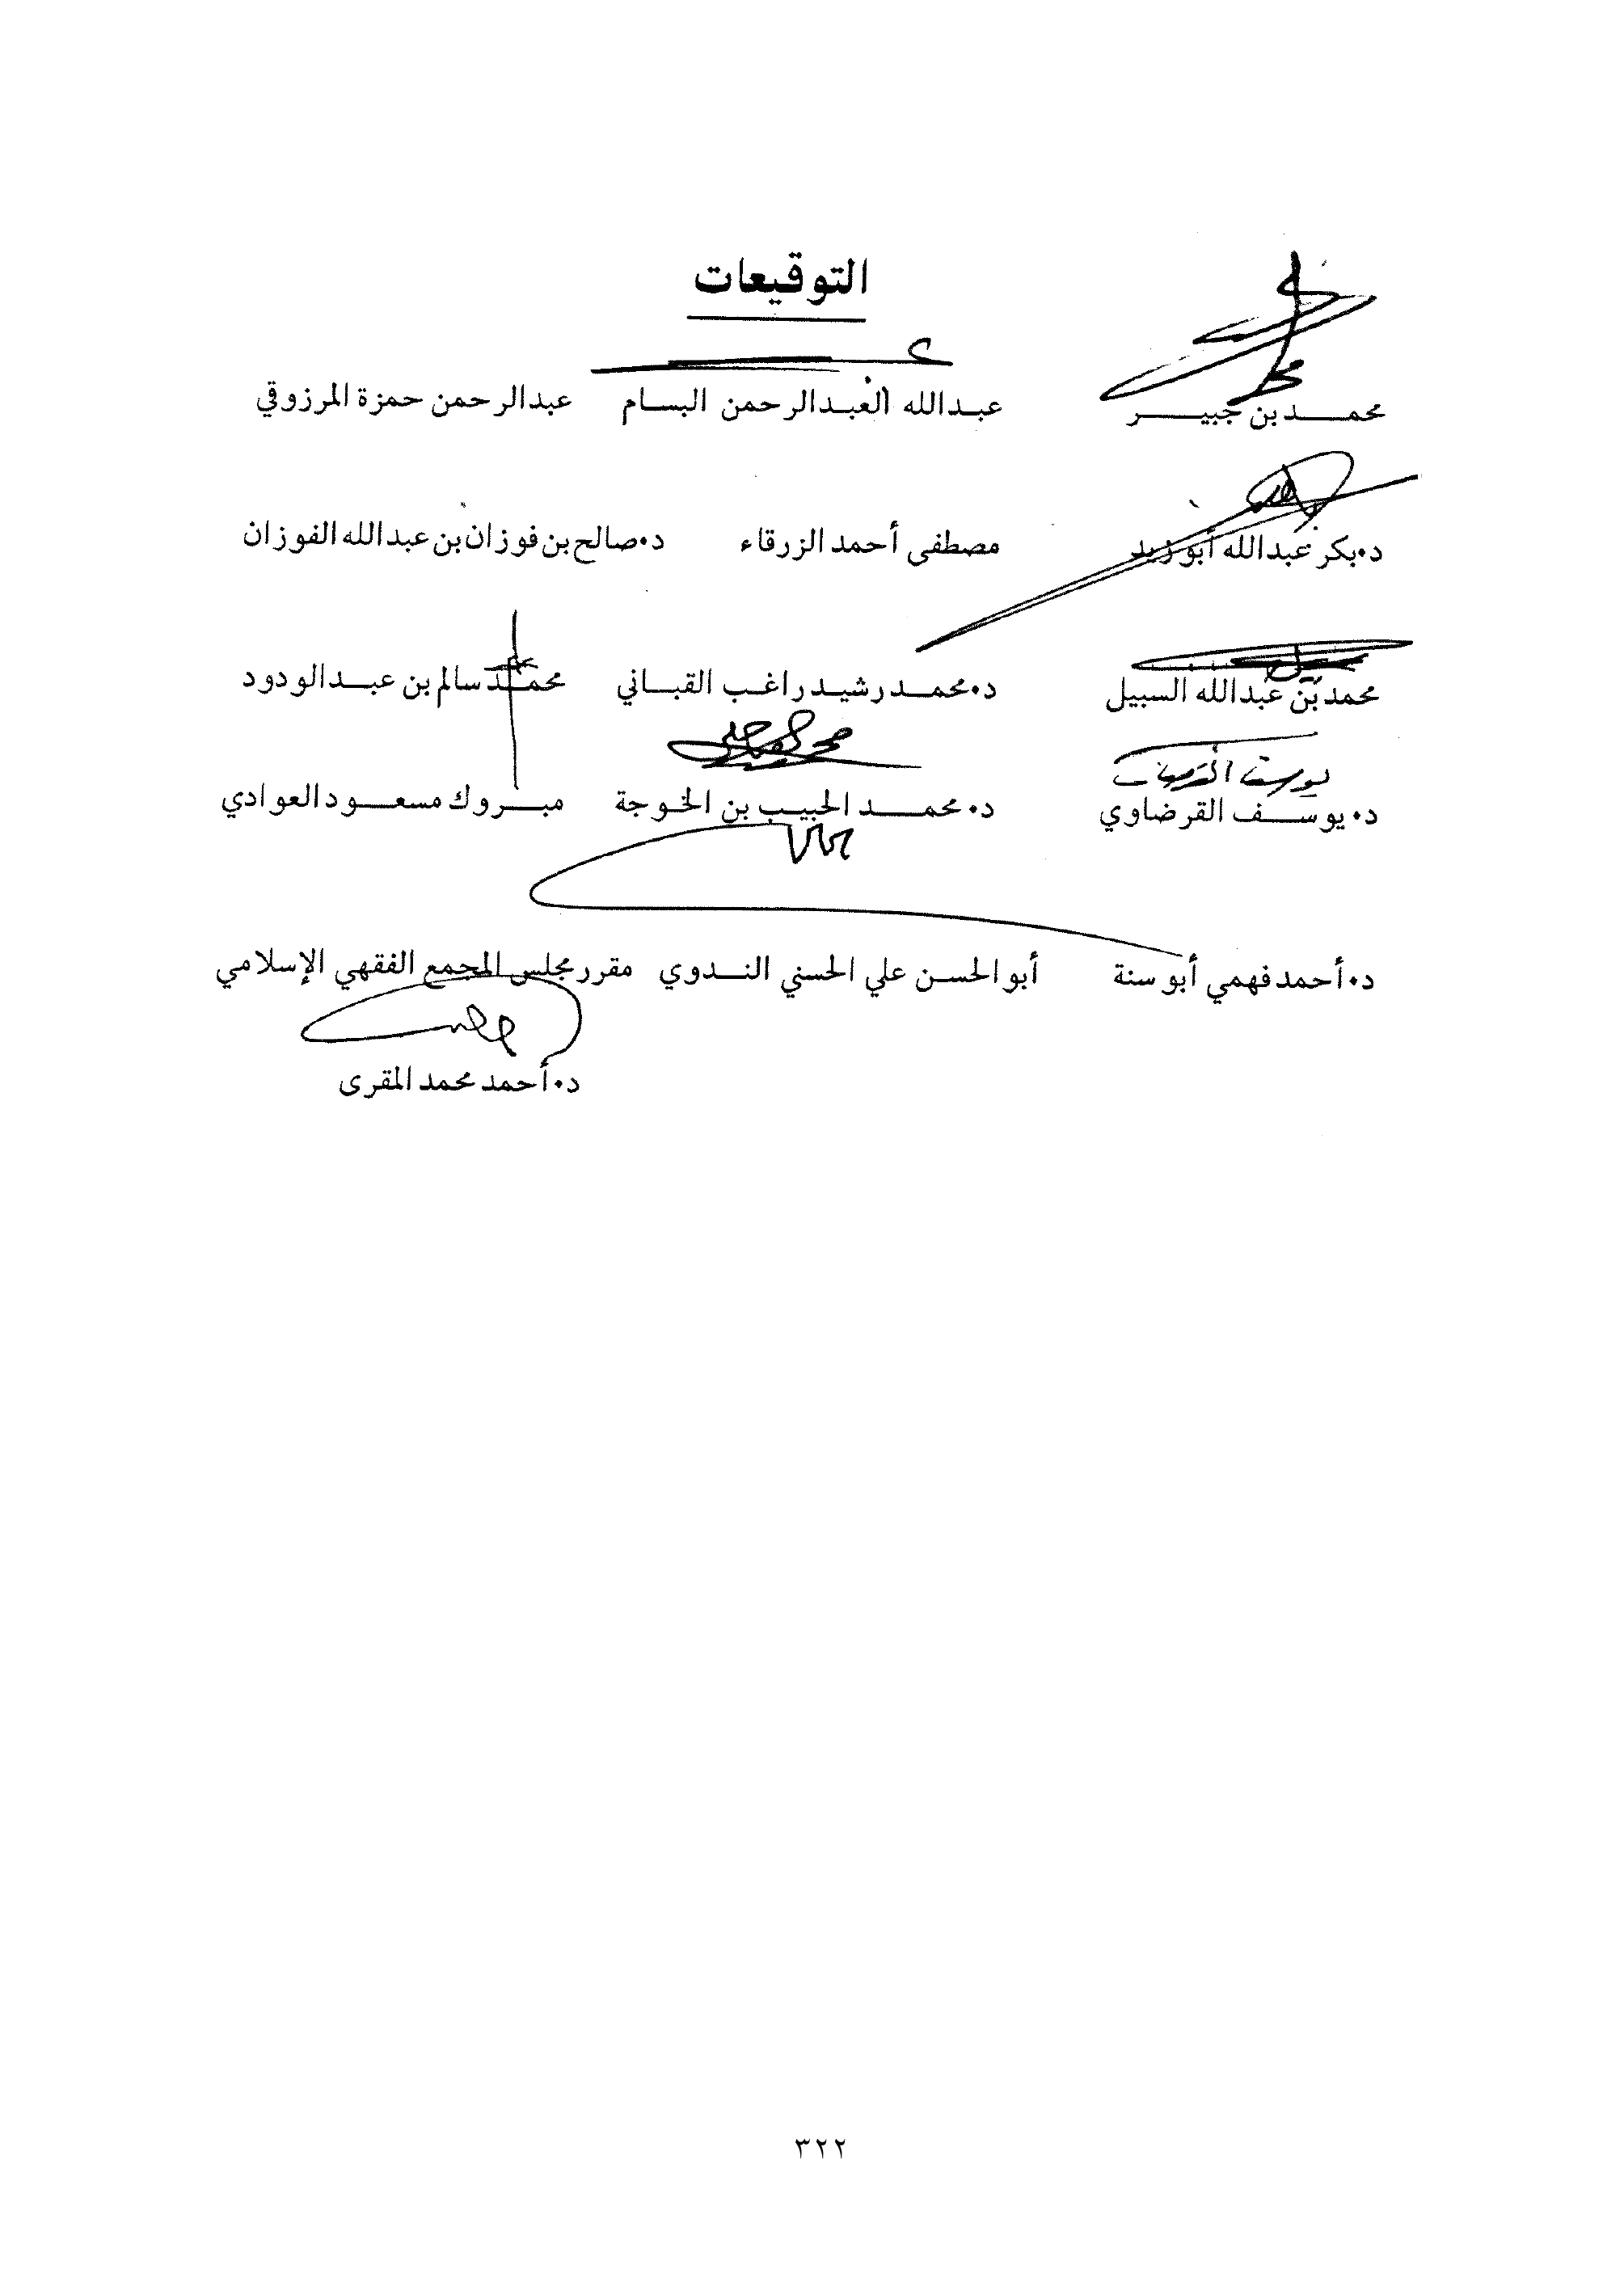 التوقيعات
محمد بن جبير عبدالله العبدالرحمن البسام عبدالرحمن حمزة المرزوقي
د. بكر عبدالله أبو زيد مصطفى أحمد الزرقاء د. صالح بن فوزان بن عبدالله الفوزان
محمد بن عبدالله السبيل د. محمد رشيد راغب القباني محمد سالم بن عبدالودود
يوسف القرضاوي
د. يوسف القرضاوي د. محمد الحبيب بن الخوجة مبروك مسعود العوادي
د. أحمد فهمي أبو سنة أبو الحسن علي الحسني الندوي مقرر مجلس المجمع الفقهي الإسلامي
د. أحمد محمد المقرى
٣٢٢